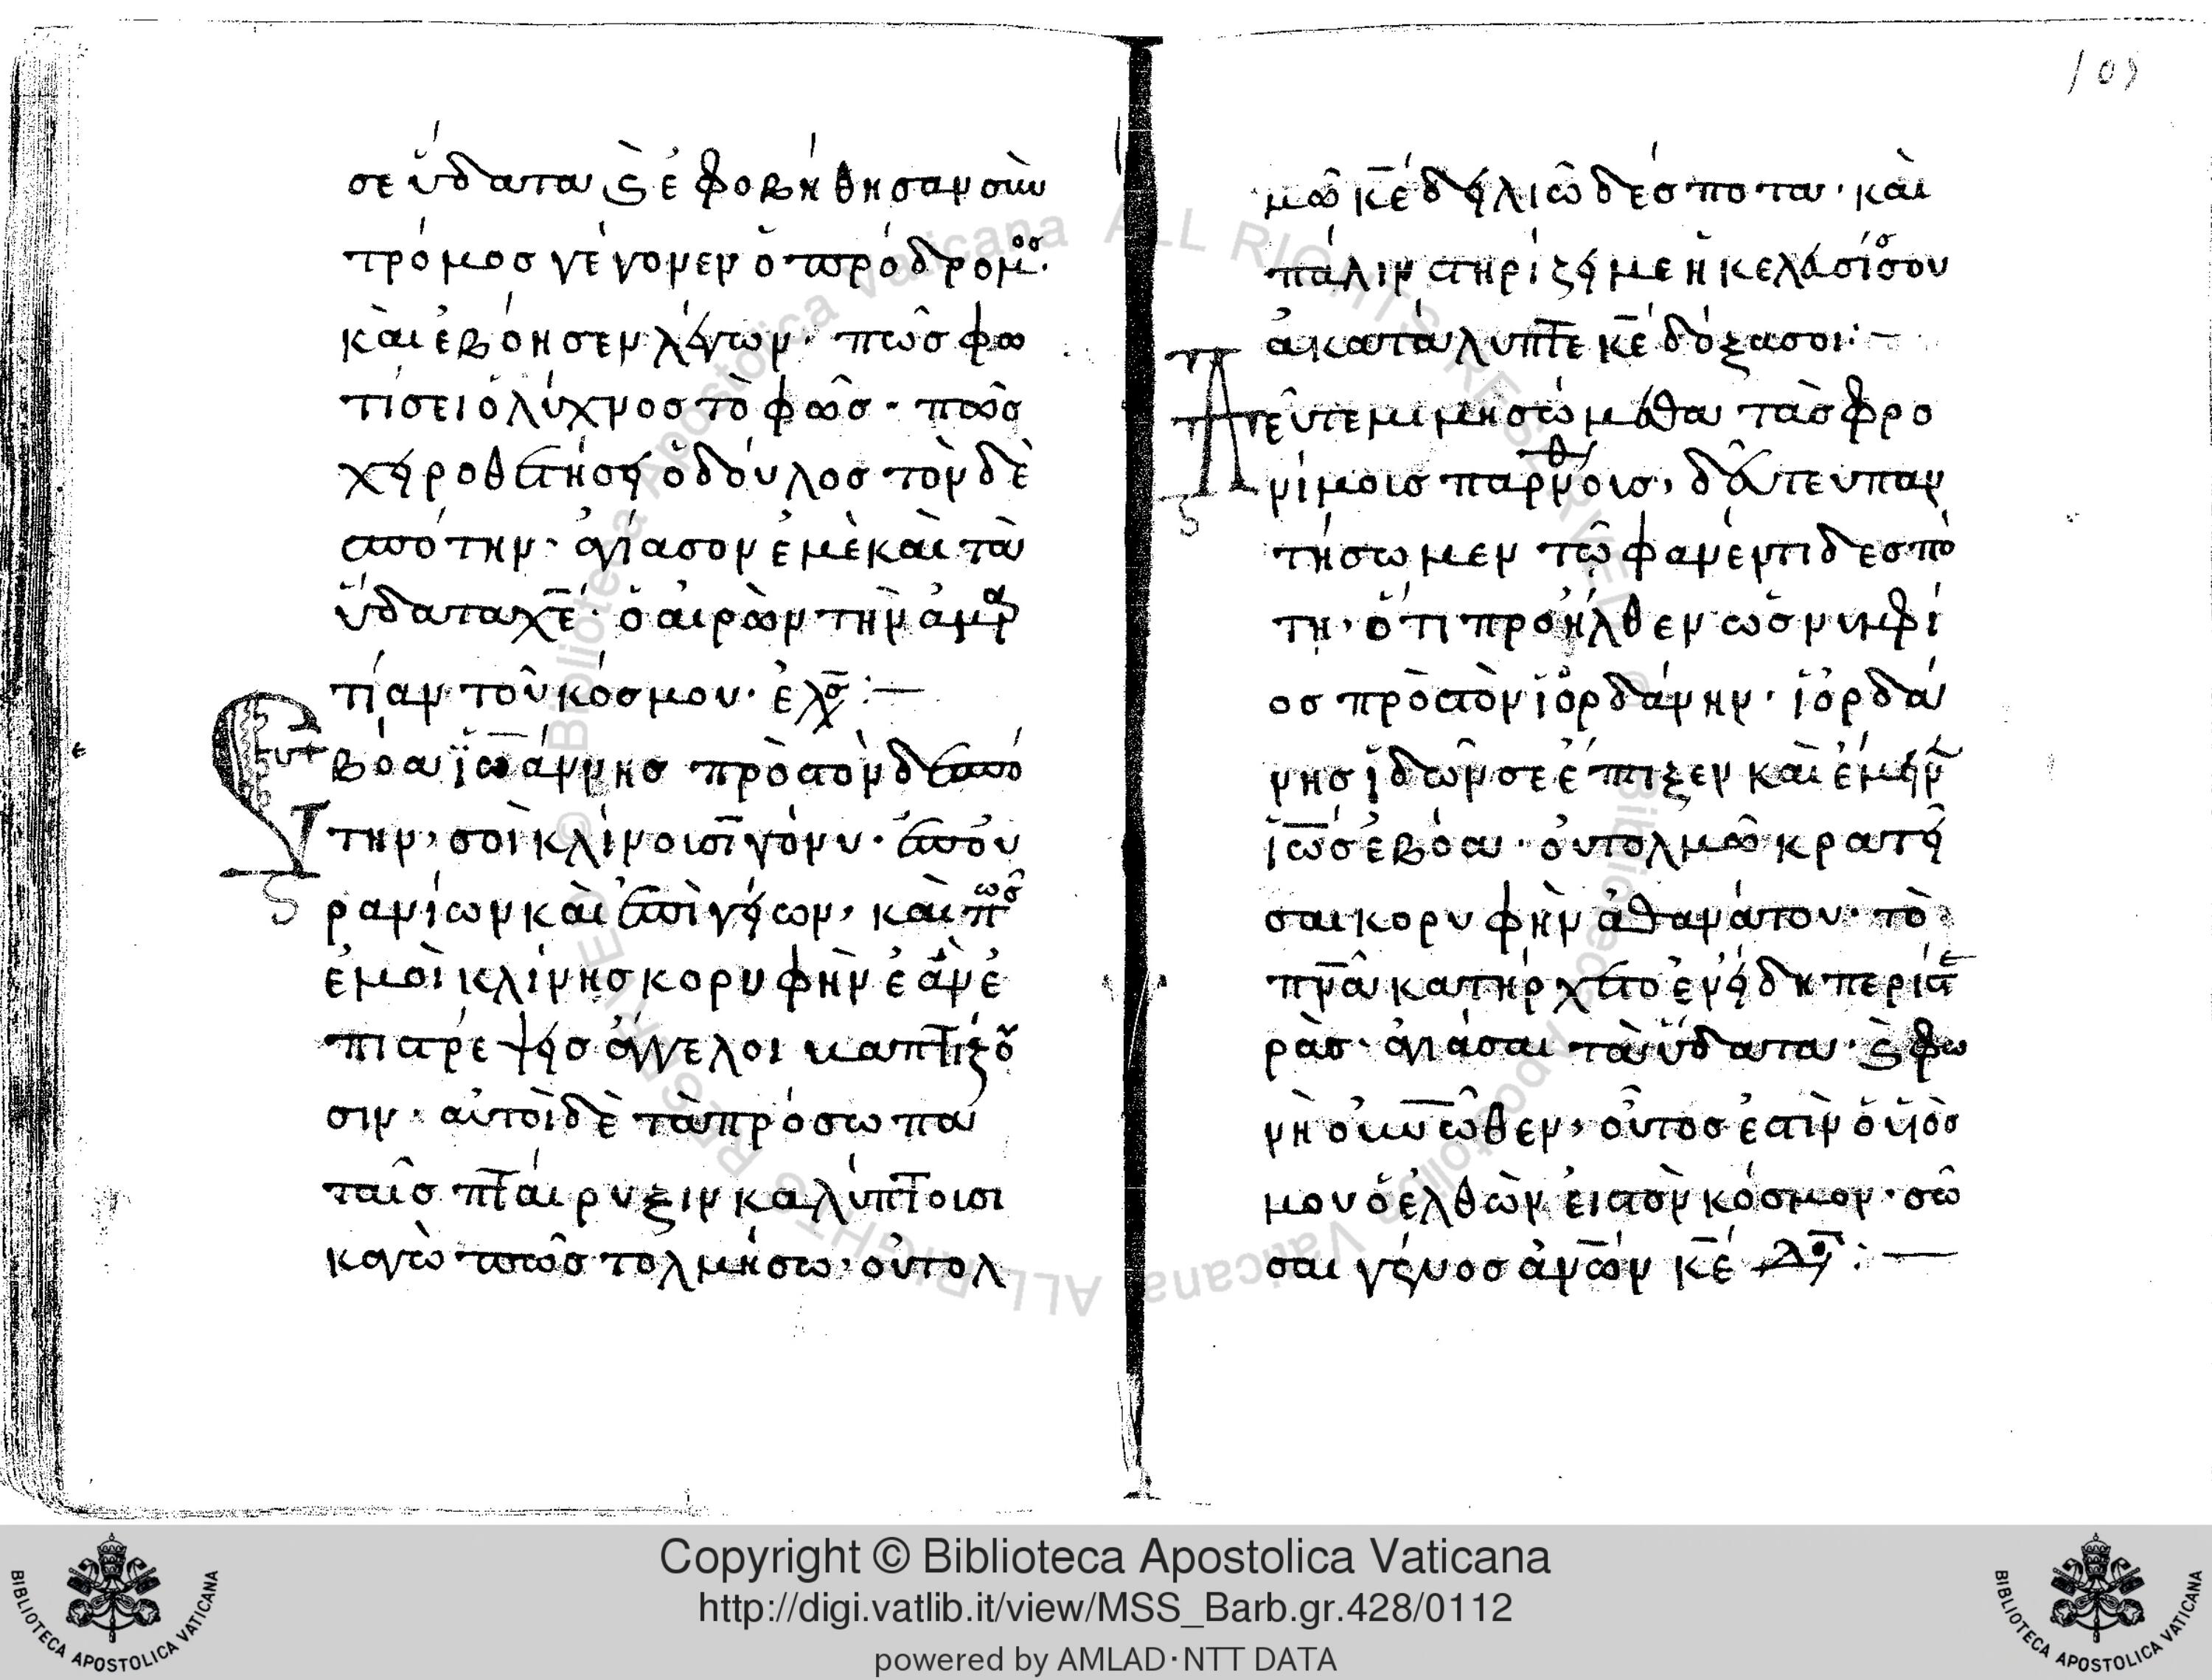 109
σε ὕδατα ϛ ἐφοβήθησαν σὺν
τρόμος γέγονεν ὁ πρόδρομος.
καὶ ἐβόησεν λέγων· πῶς φω
τίσει ὁ λύχνος τὸ φῶς· πῶς
χειροθετήσει ὁ δοῦλος τὸν δε
σπότην· ἁγίασον ἐμὲ καὶ τὰ
ὕδατα χε̅· ὁ αἰρὼν τὴν ἁμαρ
τίαν τοῦ κόσμου·
βόα ϊω̅άννης πρὸς τὸν δεσπό
την, σοὶ κλίνοισι γόνυ· ἐπου
ρανίων καὶ ἐπιγείων, καὶ πῶς
ἐμοὶ κλίνης κορυφὴν ἐὰν ἐ
πιστρέψεις ἄγγελοι
σιν· αὐτοὶ δὲ τὰ πρόσωπα
ταῖς πταίρυξιν καλύπτοισι
καγὼ πῶς τολμήσω, οὐ τολ
μῶ κε̅ δειλιῶ δέσποτα· καὶ
πάλιν
ἀκατάλυπτε κε̅ δόξα σοι:—
Δεῦτε μιμησώμεθα τὰς φρο
νίμοις παρθένοις, δεῦτε ὑπαν
τήσωμεν τῷ φανέντι δεσπό
τη, ὅτι προῆλθεν ὡς νυμφί
ος πρὸς τὸν ϊορδάνην· ϊορδά
νης ἰδών σε ἔπιξεν καὶ ἔμειν
ϊω̅ς ἐβόα· οὐ τολμῶ κρατεῖ
σαι κορυφὴν ἀθανάτου· τὸ
πν̅α κατήρχετο ἐν εἴδη περιστε
ρᾶς· ἁγιάσαι τὰ ὕδατα· ϛ φω
νὴ οὐν̅ωθεν, οὗτος ἐστὶν ὁ υἱὸς
μου ὁ ἐλθὼν εἰς τὸν κόσμον· σῶ
σαι γένος ἀν̅ων κε̅
Copyright © Biblioteca Apostolica Vaticana
http://digi.vatlib.it/view/MSS_Barb.gr.428/0112
powered by AMLAD·NTT DATA
BIBLIOTECA APOSTOLICA VATICANA
BIBLIOTECA APOSTOLICA VATICANA